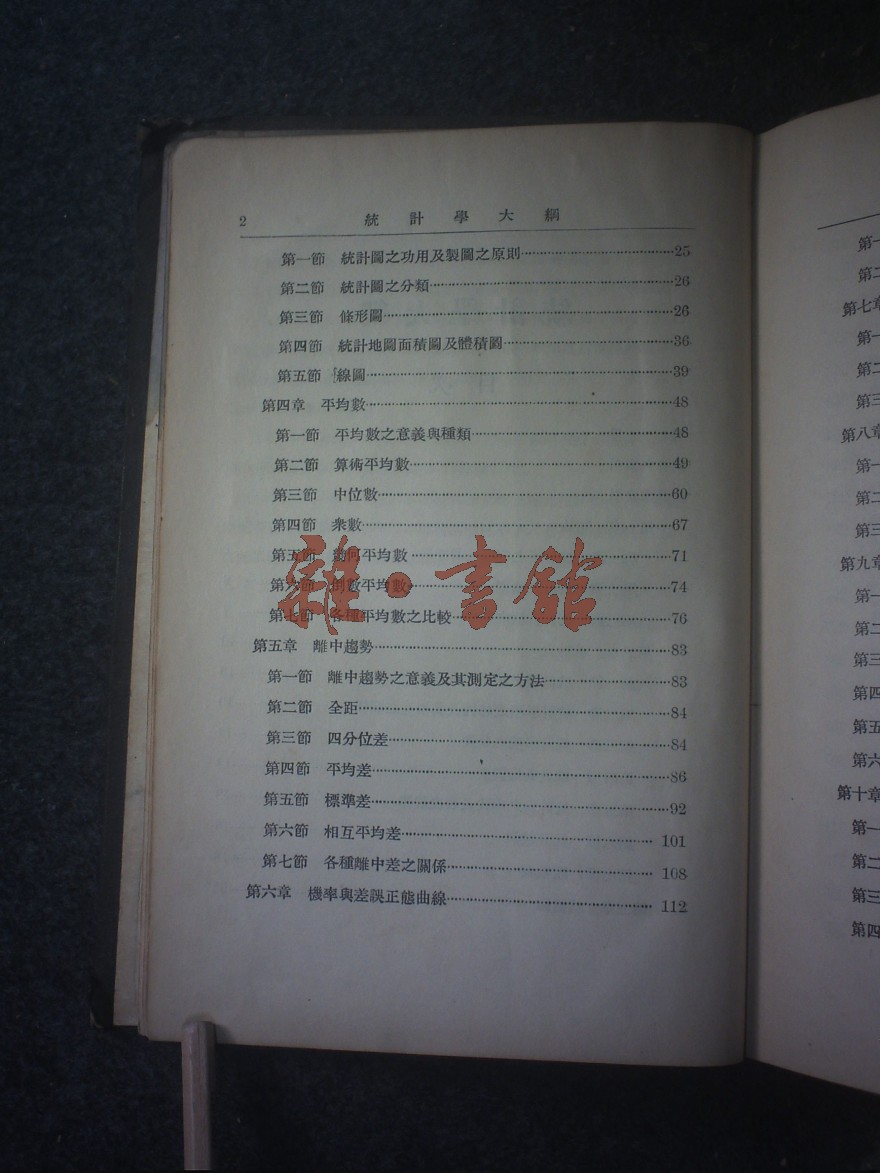 2 統計學大綱
第一節 統計圖之功用及製圖之原則 25
第二節 統計圖之分類 26
第三節 條形圖 26
第四節 統計地圖面積圖及體積圖 36
第五節 線圖 39
第四章 平均數 48
第一節 平均數之意義與種類 48
第二節 算術平均數 49
第三節 中位數 60
第四節 衆數 67
第五節 幾何平均數 71
第六節 倒數平均數 74
第七節 各種平均數之比較 76
第五章 離中趨勢 83
第一節 離中趨勢之意義及其測定之方法 83
第二節 全距 84
第三節 四分位差 84
第四節 平均差 86
第五節 標準差 92
第六節 相互平均差 101
第七節 各種離中差之關係 108
第六章 機率與差誤正態曲線 112
雜·書館
第一
第二
第七章
第一
第二
第三
第八章
第一
第二
第三
第九章
第一
第二
第三
第四
第五
第六
第十章
第一
第二
第三
第四